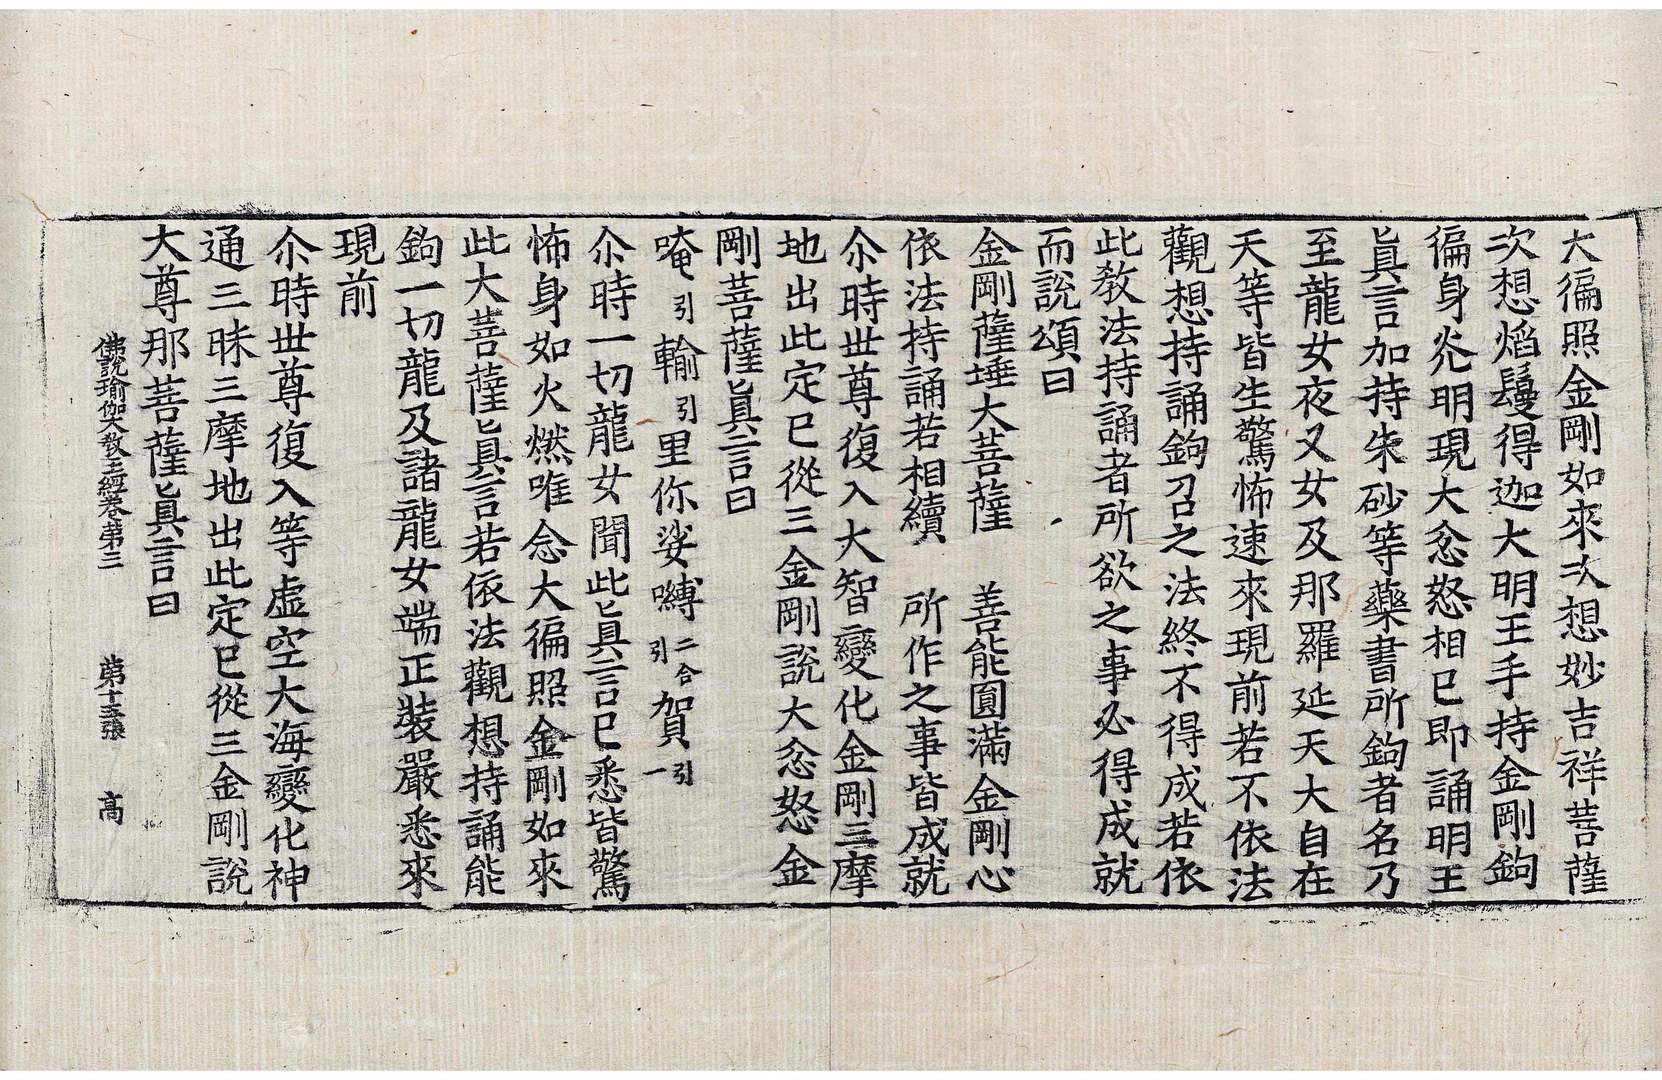 大徧照金剛如來次想妙吉祥菩薩
次想焰鬘得迦大明王手持金剛鉤
徧身光明現大忿怒相已即誦明王
眞言加持朱砂等藥書所鉤者名乃
至龍女夜叉女及那羅延天大自在
天等皆生驚怖速來現前若不依法
觀想持誦鉤召之法終不得成若依
此教法持誦者所欲之事必得成就
而說頌曰
金剛薩埵大菩薩　善能圓滿金剛心
依法持誦若相續　所作之事皆成就
尒時世尊復入大智變化金剛三摩
地出此定已從三金剛說大忿怒金
剛菩薩眞言曰
唵引輸引里你娑嚩二合引賀引一
尒時一切龍女聞此眞言已悉皆驚
怖身如火燃唯念大徧照金剛如來
此大菩薩眞言若依法觀想持誦能
鉤一切龍及諸龍女端正裝嚴悉來
現前
尒時世尊復入等虛空大海變化神
通三昧三摩地出此定已從三金剛說
大尊那菩薩眞言曰
佛說瑜伽大教王經卷第三　第十三張　高